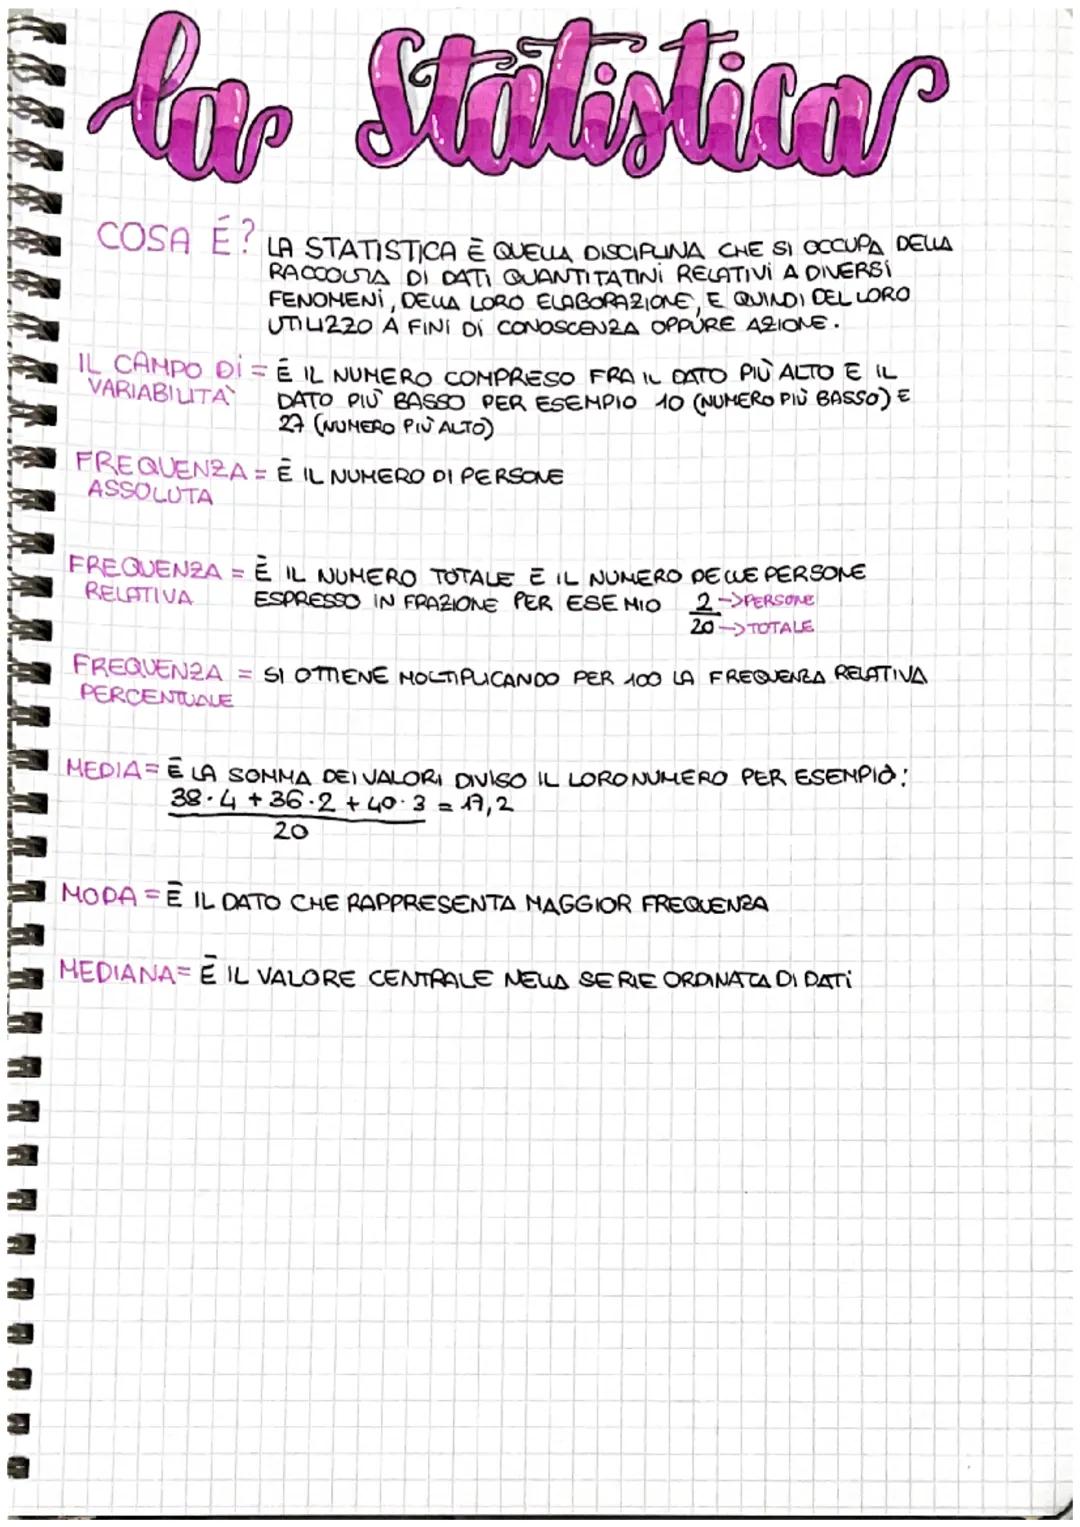 la Statistica
COSA É? LA STATISTICA È QUELLA DISCIPLINA CHE SI OCCUPA DELLA
RACCOLTA DI DATI QUANTITATINI RELATIVI A DIVERSI
FENOMENI, DELLA LORO ELABORAZIONE, E QUINDI DEL LORO
UTILIZZO A FINI DI CONOSCENZA OPPURE AZIONE.
IL CAMPO DI = È IL NUMERO COMPRESO FRA IL DATO PIÙ ALTO E IL
VARIABILITÀ DATO PIÙ BASSO PER ESEMPIO 10 (NUMERO PIÙ BASSO) E
27 (NUMERO PIÙ ALTO)
FREQUENZA = È IL NUMERO DI PERSONE
ASSOLUTA
FREQUENZA = È IL NUMERO TOTALE E IL NUMERO DELLE PERSONE
RELATIVA ESPRESSO IN FRAZIONE PER ESEMIO 2 -> PERSONE
20 -> TOTALE
FREQUENZA = SI OTTIENE MOLTIPLICANDO PER 100 LA FREQUENZA RELATIVA
PERCENTUALE
MEDIA = È LA SOMMA DEI VALORI DIVISO IL LORO NUMERO PER ESEMPIO:
38·4 + 36·2 + 40·3 = 17,2
20
MODA = È IL DATO CHE RAPPRESENTA MAGGIOR FREQUENZA
MEDIANA = È IL VALORE CENTRALE NELLA SERIE ORDINATA DI DATI